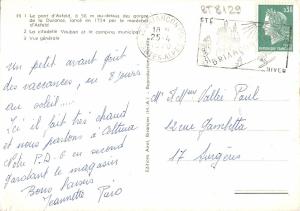 RT 8129
1 Le pont d'Asfeld, à 56 m au-dessus des gorges
de la Durance, lancé en 1734 par le maréchal
d'Asfeld
2 La citadelle Vauban et le camping municipal
3 Vue générale
BRIANÇON
18 H
25-
HTES ALPES
ÉTÉ
BRIAN
HIVER
0,30
Un petit avant goût
des vacances, en 8 jours
au soleil....
Il fait très chaud
et nous partons d'
Notre P.D.G en second
gardant le magasin
Bons Baisers
Jeannette
Mr et Mme Vallée Paul
12 rue Gambetta
17 Surgères